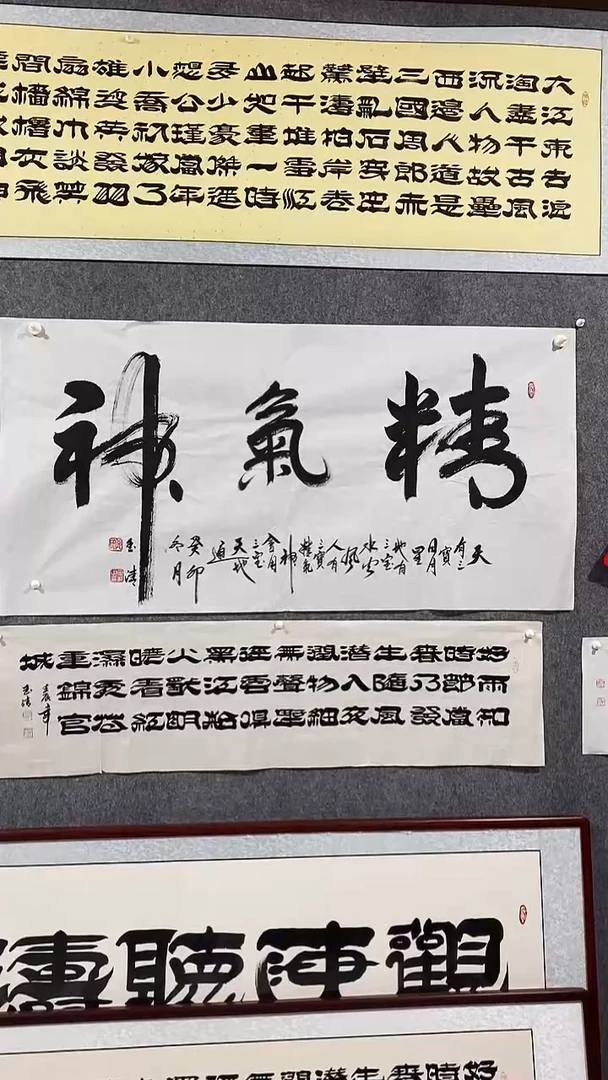 大江東去浪
淘盡千古風
流人物故壘
西邊人道是
三國周郎赤
壁亂石穿空
驚濤拍岸卷
起千堆雪江
山如畫一時
多少豪傑遥
想公瑾當年
小喬初嫁了
雄姿英發羽
扇綸巾談笑
間檣櫓灰飛
精氣神
天
有三
寶
日月
星
地有
三宝
水火
風
人有
三寶
精氣
神
會用
三宝
天地
通
癸卯
冬月
玉濤
好雨知
時節當
春乃發
生隨風
潛入夜
潤物細
無聲野
徑雲俱
黑江船
火獨明
曉看紅
濕處花
重錦官
城
玉濤
觀海聽濤